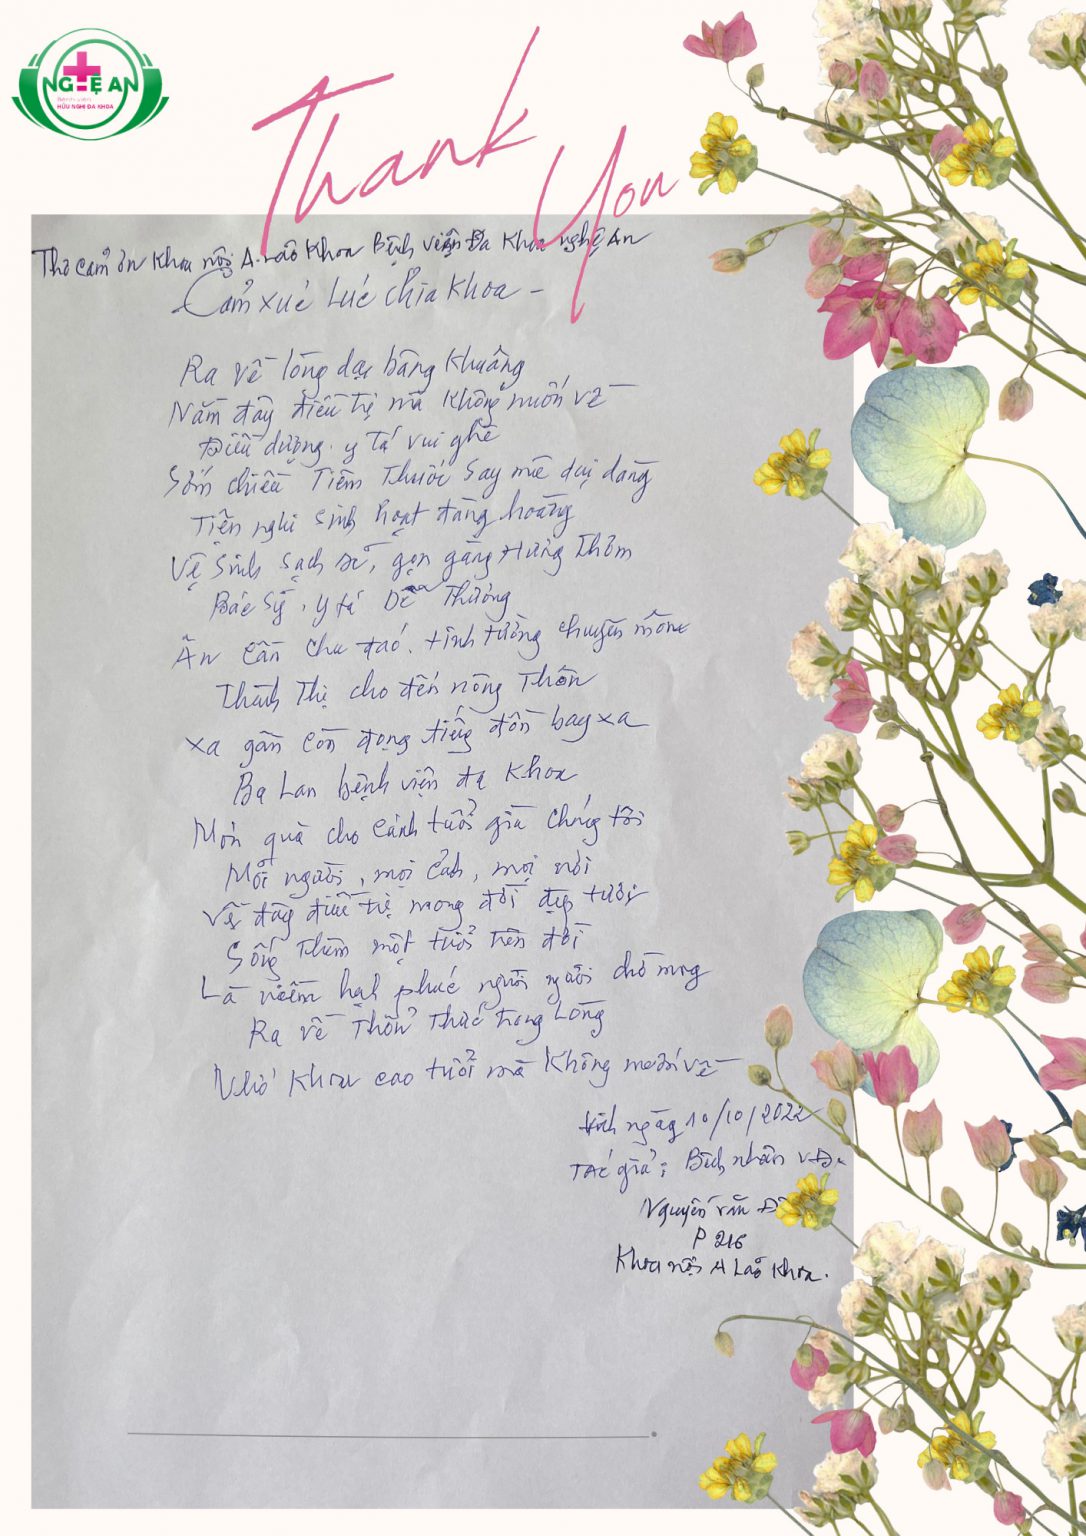 NGHỆ AN
Bệnh viện
HỮU NGHỊ ĐA KHOA
Thank
You
Thơ cảm ơn Khoa nội A. Lão Khoa Bệnh viện Đa Khoa nghệ An
Cảm xúc Lúc chia Khoa -
Ra về lòng dạ bâng khuâng
Nằm đây điều trị mà không muốn về
Điều dưỡng. y tá vui ghê
Sớm chiều Tiêm Thuốc Say mê dịu dàng
Tiện nghi sinh hoạt đàng hoàng
Vệ sinh sạch sẽ, gọn gàng Hương Thơm
Bác sỹ, y tá Dễ Thương
Ân cần chu đáo. tinh tường chuyên môn
Thành Thị cho đến nông Thôn
xa gần còn đọng tiếng đồn bay xa
Ba Lan bệnh viện đa Khoa
Món quà cho cảnh tuổi già chúng tôi
Mỗi người, mọi cảnh, mọi nơi
Về đây điều trị mong đời đẹp tươi
Sống thêm một tuổi trên đời
Là niềm hạnh phúc người người chờ mong
Ra về Thổn Thức trong Lòng
Nhớ Khoa cao tuổi mà Không muốn về
Vinh ngày 10/10/2022
Tác giả: Bệnh nhân
Nguyễn văn
P 216
Khoa nội A Lão Khoa.